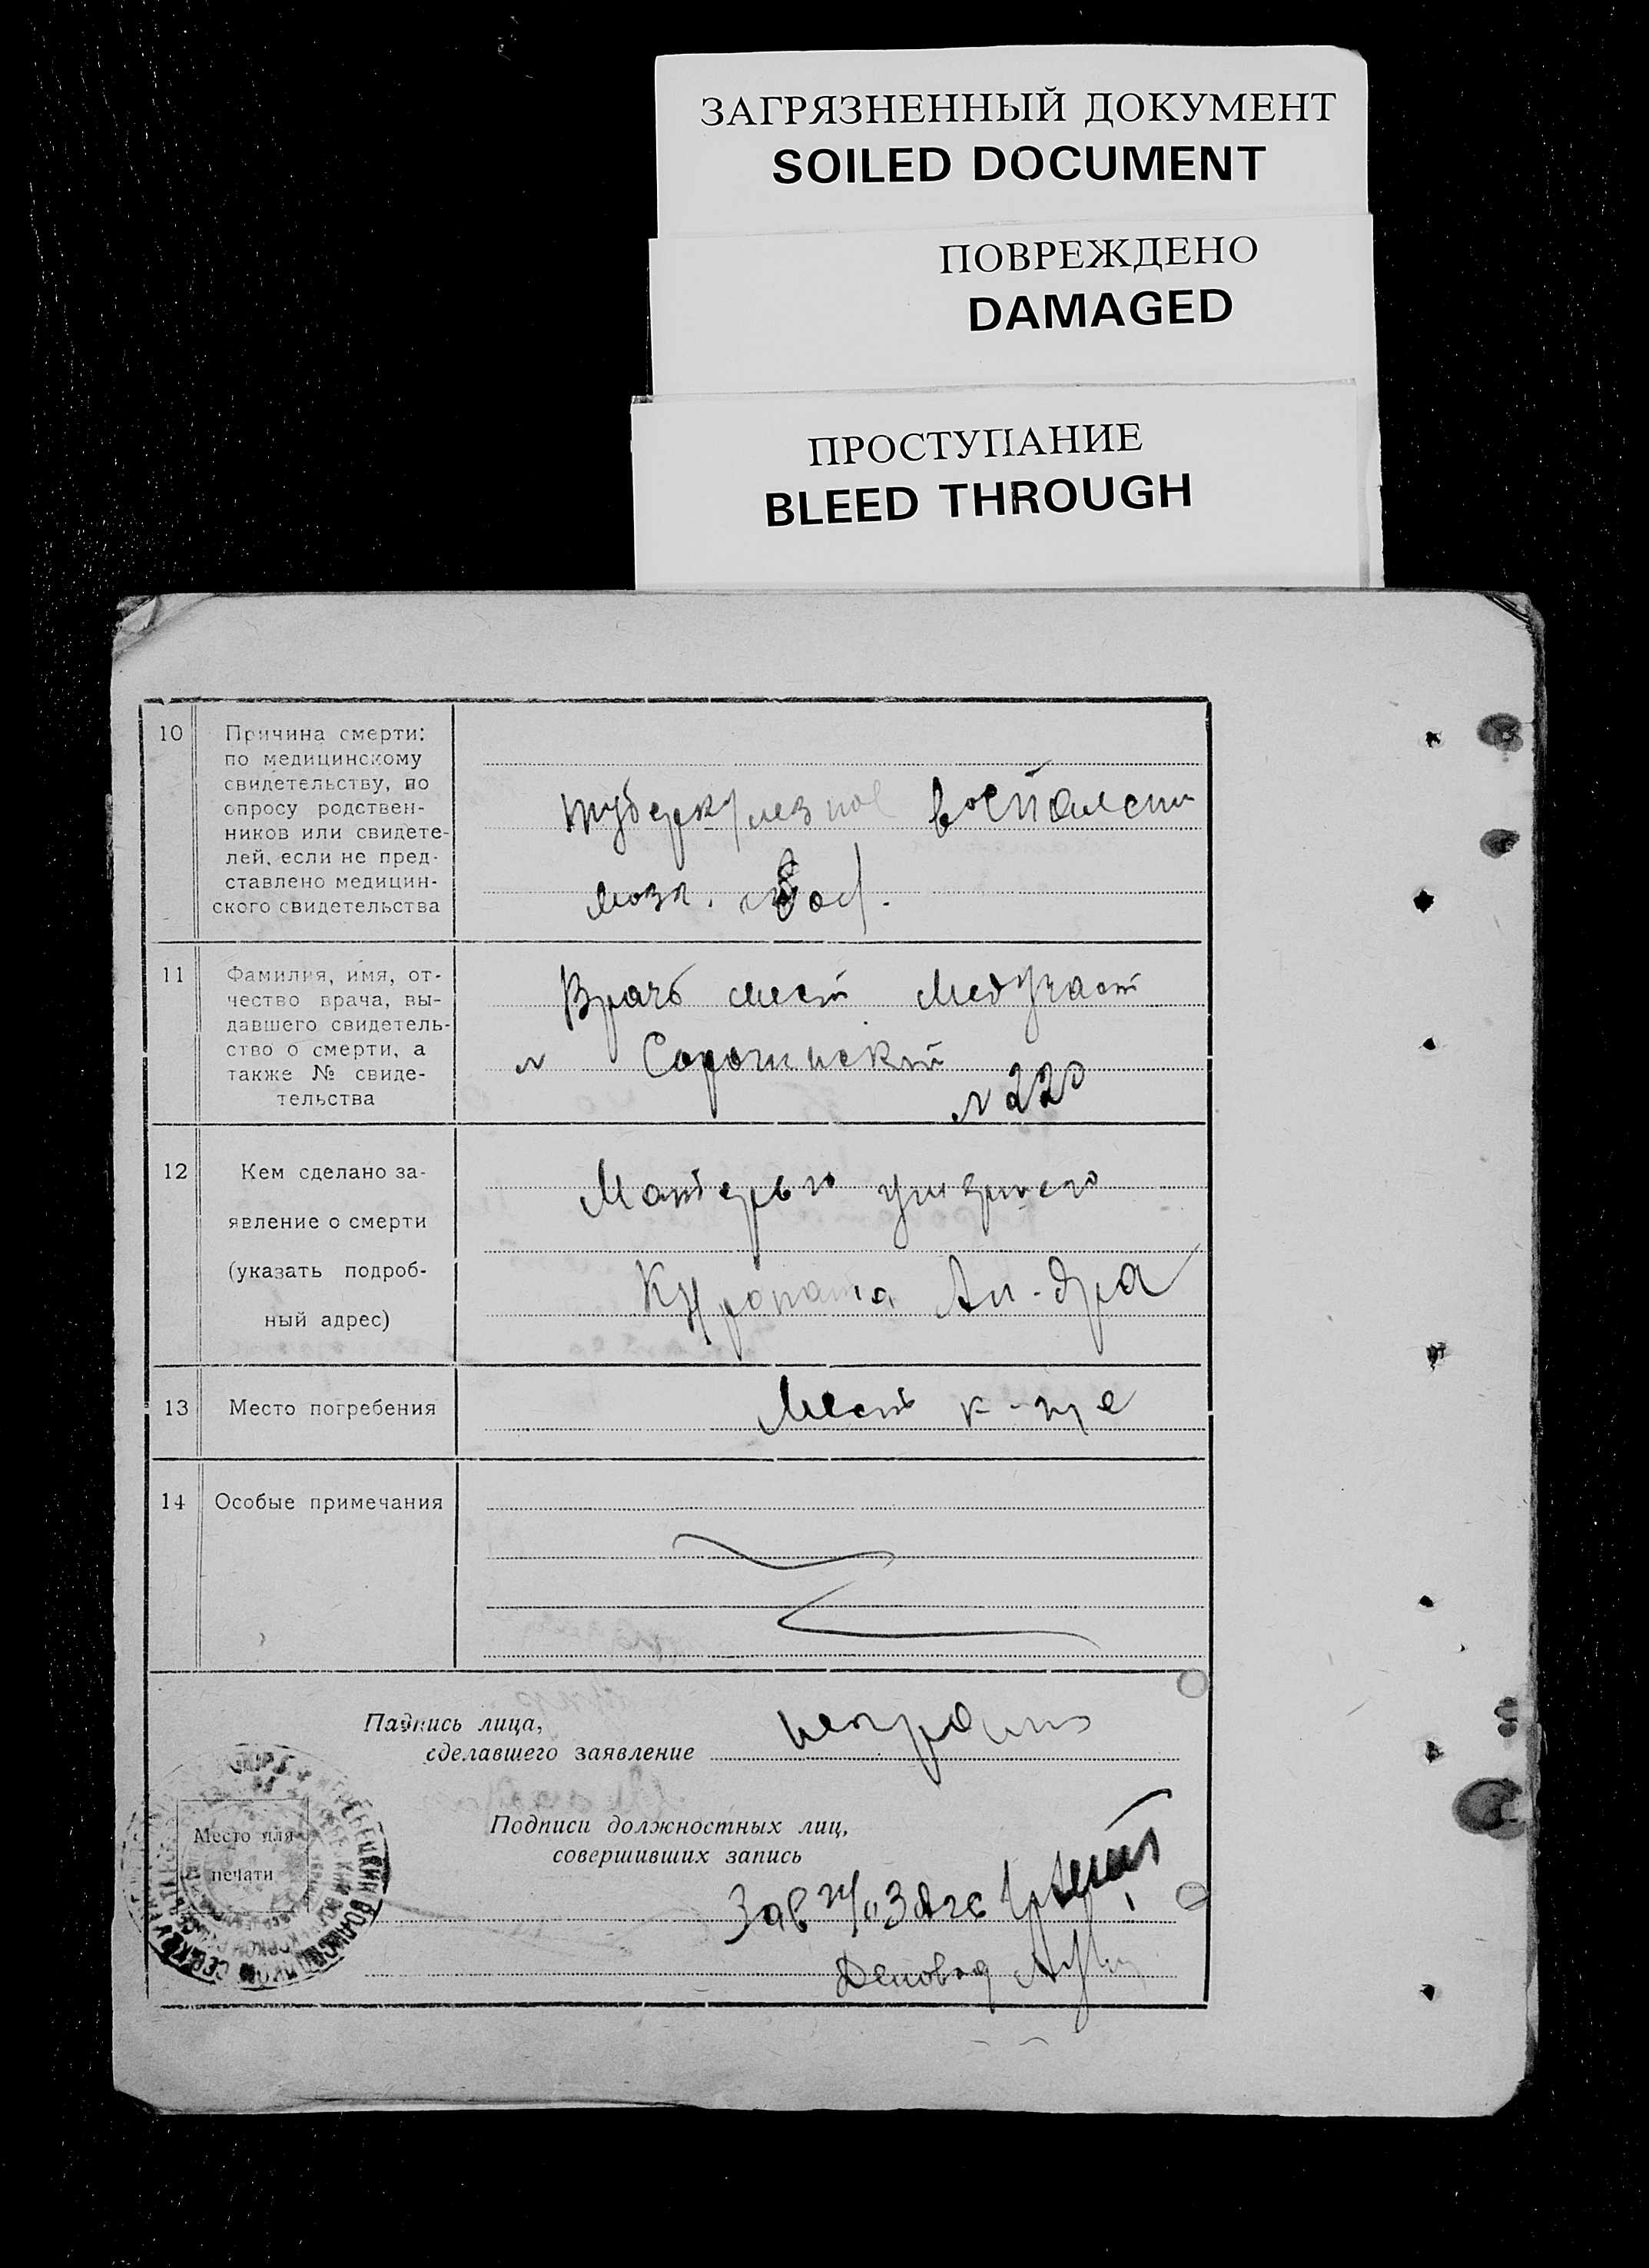 ЗАГРЯЗНЕННЫЙ ДОКУМЕНТ
SOILED DOCUMENT
ПОВРЕЖДЕНО
DAMAGED
ПРОСТУПАНИЕ
BLEED THROUGH
10
Причина смерти:
по медицинскому
свидетельству, по
опросу родствен-
ников или свидете-
лей, если не пред-
ставлено медицин-
ского свидетельства
туберкулезное воспаление
мозг.
11
Фамилия, имя, от-
чество врача, вы-
давшего свидетель-
ство о смерти, а
также № свиде-
тельства
Врачь мест Медучаст
Сорочинский
№ 220
12
Кем сделано за-
явление о смерти
(указать подроб-
ный адрес)
Матерью умершего
Куропата Ал-дра
13
Место погребения
Мест к-ще
14
Особые примечания
Падпись лица,
сделавшего заявление
неграмот
Место для
печати
Подписи должностных лиц,
совершивших запись
Зав п/о Загс
Деловод